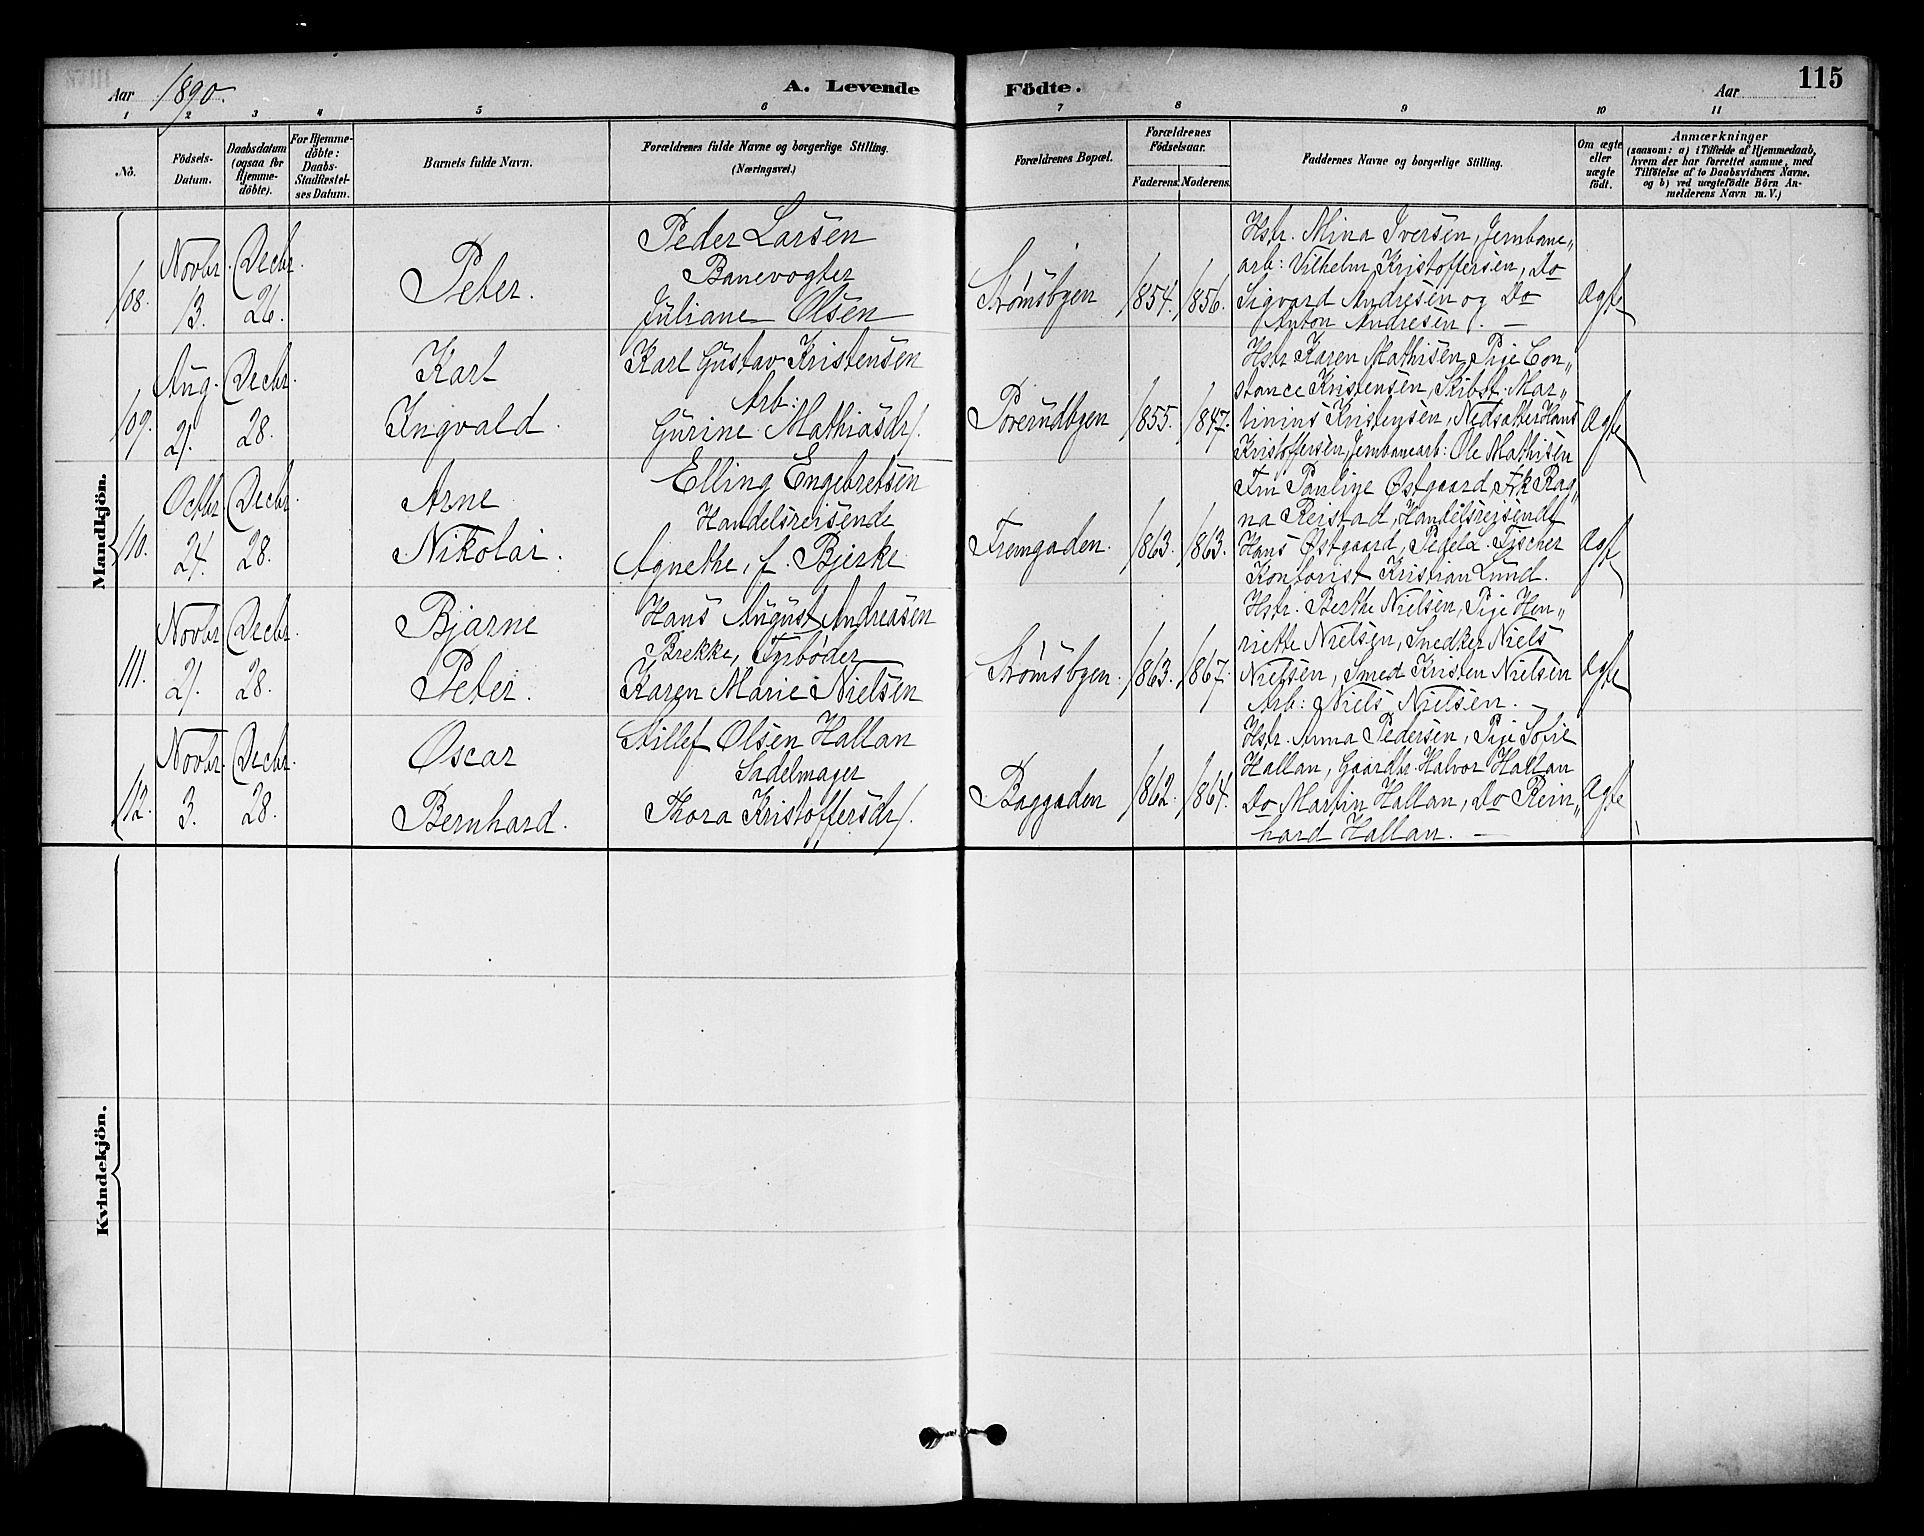 Aar 1890.
A. Levende
Födte.
Aar
115
1 2 3 4 5 6 7 8 9 10 11
No.
Födsels-
Datum.
Daabsdatum
(ogsaa for
Hjemme-
döbte).
For Hjemme-
döbte:
Daabs-
Stadfestel-
ses Datum.
Barnets fulde Navn.
Forældrenes fulde Navne og borgerlige Stilling.
(Næringsvei.)
Forældrenes Bopæl.
Forældrenes
Födselsaar.
Faderens. Moderens.
Faddernes Navne og borgerlige Stilling.
Om ægte
eller
uægte
födt.
Anmærkninger
(saasom: a) i Tilfælde af Hjemmedaab,
hvem der har forrettet samme, med
Tilföielse af to Daabsvidners Navne,
og b) ved uægtefödte Börn An-
melderens Navn m. V.)
Mandkjön.
108.
Novbr.
13.
Decbr.
26.
Peter.
Peder Larsen
Banevogter
Juliane Olsen
Strømsbyen
1854.
1856.
Hstr. Mina Iversen, Jernbane„
arb: Vilhelm Kristoffersen, Do
Sigvard Andresen og Do
Anton Andresen. —
Ægte
109.
Aug.
21.
Decbr.
28.
Karl
Ingvald.
Karl Gustav Kristensen
Arb:
Gurine Mathiasdr.
Porerudbyen
1855.
1847.
Hstr Karen Mathisen, Pige Con„
stance Kristensen, Skibst: Mar„
tinius Kristensen, Nedsatter Hans
Kristoffersen, Jernbanearb: Ole Mathisen
Ægte
110.
Octbr
24.
Decbr.
28.
Arne
Nikolai.
Elling Engebretsen
Handelsreisende
Agnethe, f. Bjerke
Fremgaden.
1863.
1863.
Fru Pauline Østgaard, Frk Rag„
na Reistad, Handelsreisende
Hans Østgaard, Fischer
Kontorist Kristian Lund.
Ægte
111.
Novbr
21.
Decbr.
28.
Bjarne
Peter.
Hans August Andreasen
Brekke, Fyrbøder
Karen Marie Nielsen
Strømsbyen.
1863.
1867.
Hstr. Berthe Nielsen, Pige Hen„
riette Nielsen, Snedker Niels
Nielsen, Smed Kristen Nielsen
Arb: Niels Nielsen. —
Ægte
112.
Novbr
3.
Decbr.
28.
Oscar
Bernhard.
Stillef Olsen Hallan
Sadelmager
Thora Kristoffersdr.
Baggaden
1862.
1864.
Hstr. Anna Pedersen, Pige Sofie
Hallan, Gaardbr. Halvor Hallan
Do Martin Hallan, Do Rein„
hard Hallan. —
Ægte
Kvindekjön.